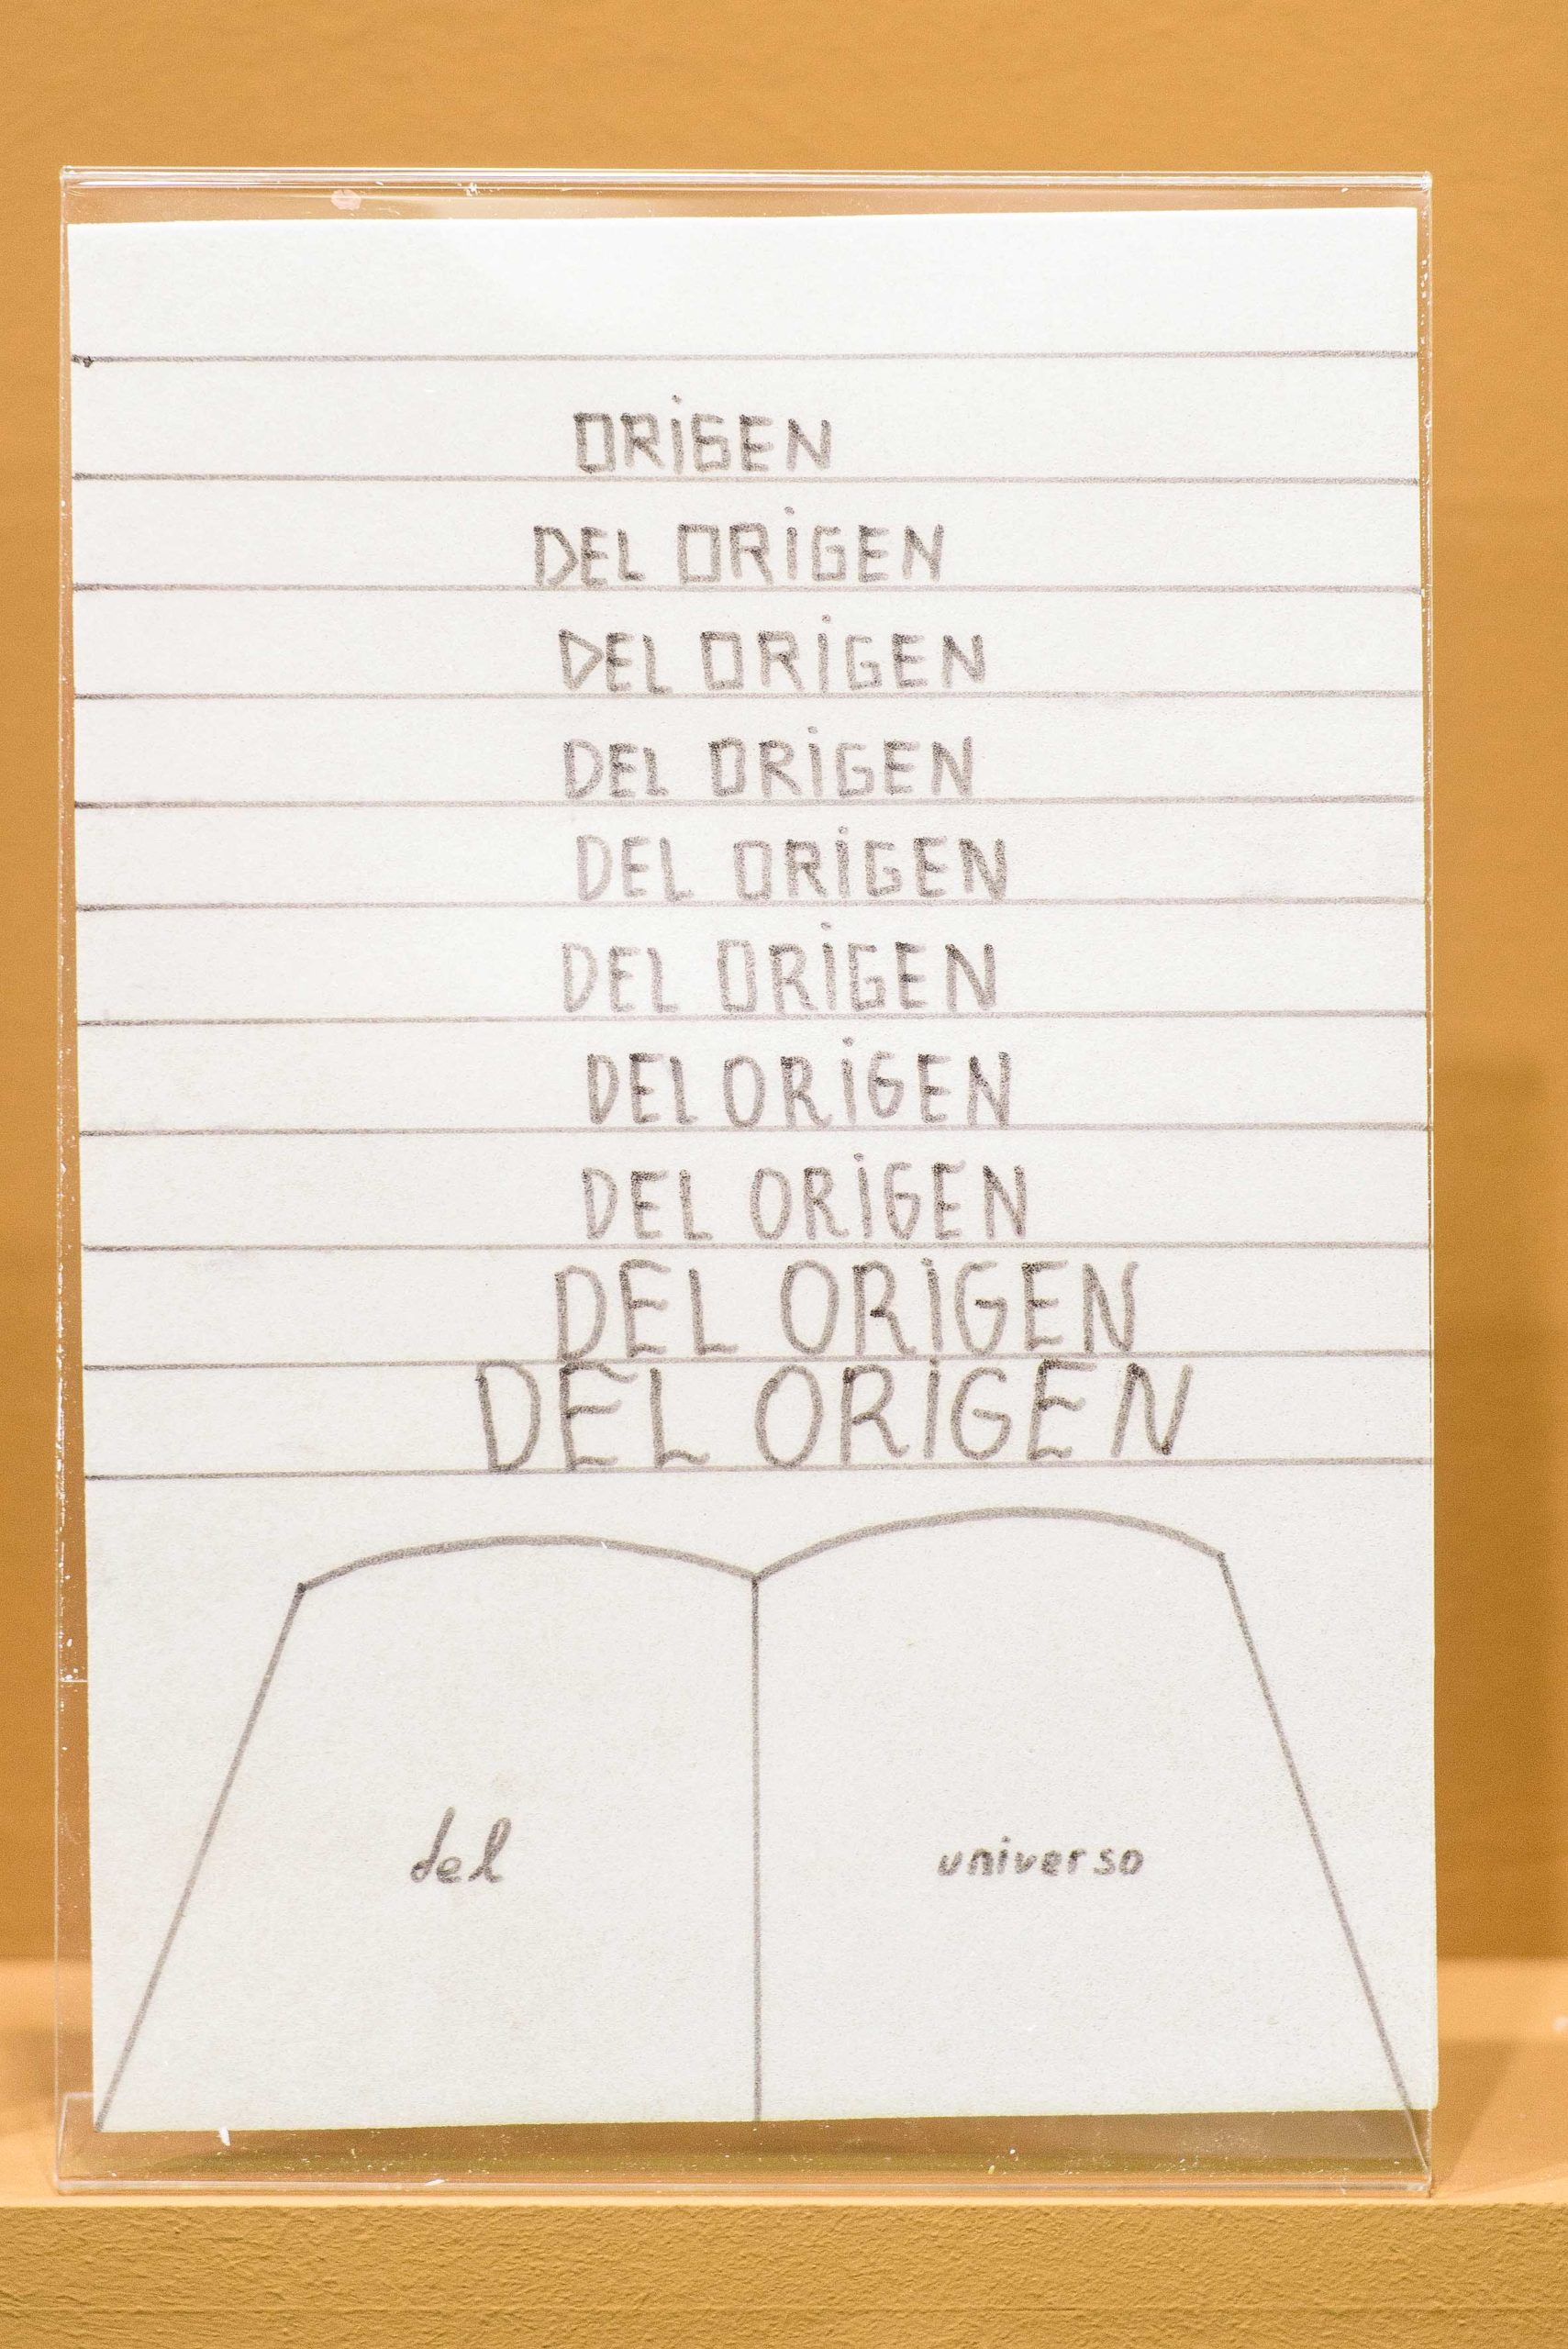 ORiGEN
DEL ORiGEN
DEL ORiGEN
DEL ORiGEN
DEL ORiGEN
DEL ORiGEN
DEL ORiGEN
DEL ORiGEN
DEL ORIGEN
DEL ORIGEN
del universo